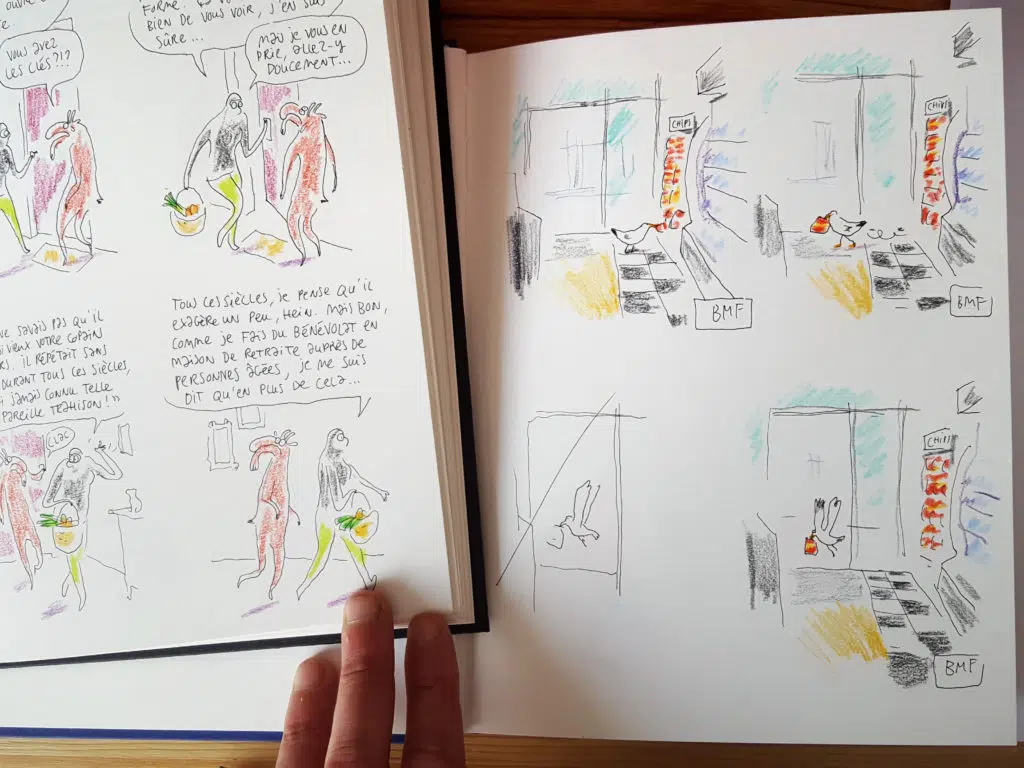 OUVRE
VOUS AVEZ
LES CLÉS?!?
FORME.
BIEN DE VOUS VOIR, J'EN SUIS
SÛRE...
MAIS JE VOUS EN
PRIE, ALLEZ-Y
DOUCEMENT...
SAVAIS PAS QU'IL
VEUX VOTRE COPAIN
IL RÉPÉTAIT SANS
DURANT TOUS CES SIÈCLES,
JAMAIS CONNU TELLE
PAREILLE TRAHISON!"
CLAC
TOUS CES SIÈCLES, JE PENSE QU'IL
EXAGÈRE UN PEU, HEIN. MAIS BON,
COMME JE FAIS DU BÉNÉVOLAT EN
MAISON DE RETRAITE AUPRÈS DE
PERSONNES AGÉES, JE ME SUIS
DIT QU'EN PLUS DE CELA...
CHIPS
BMF
CHIPS
BMF
CHIPS
BMF